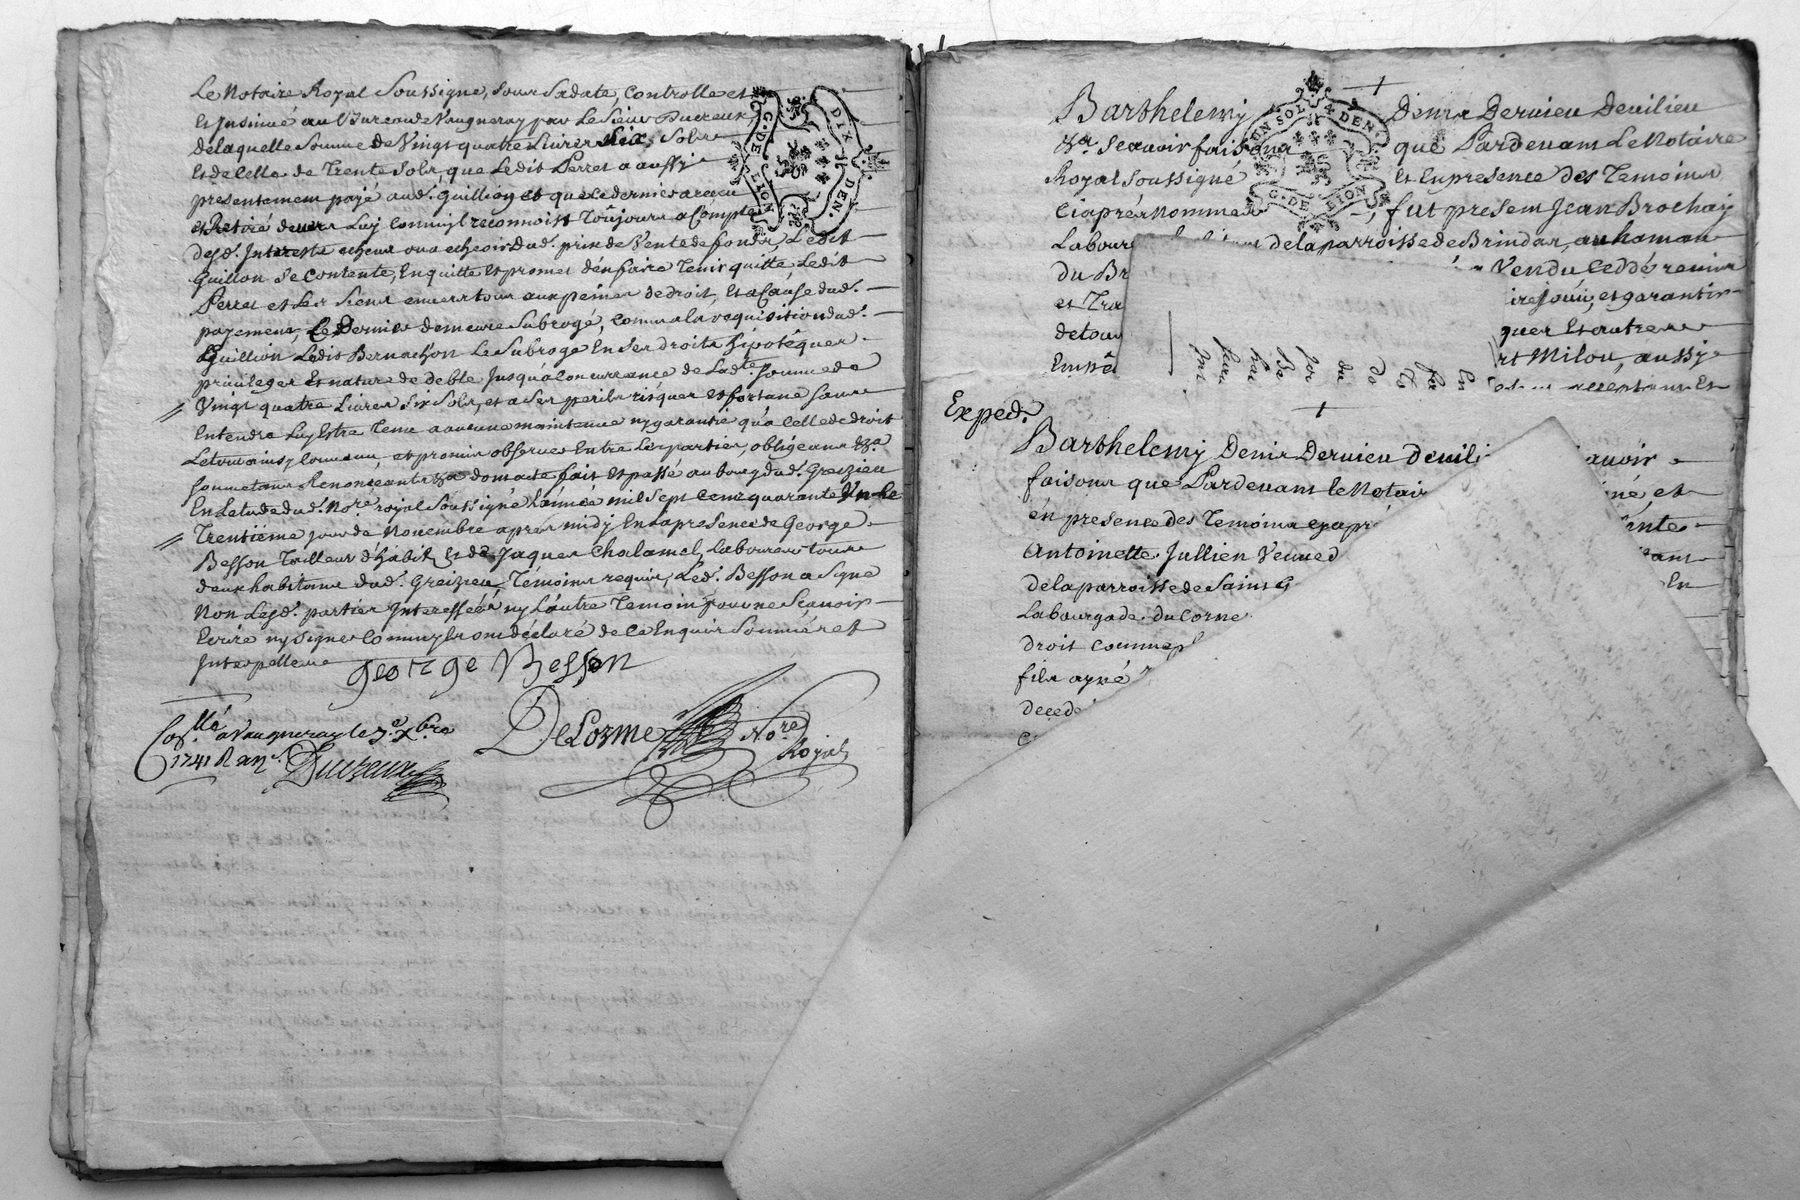 Le Notaire Royal Soussigne, sour sa date, Controlle et
et Insinué au Bureau de Vaugneray par Le Sieur Ducreux,
de laquelle Somme de Vingt quatre Livres Six Sols
et de Celle de Trente Sols, que Ledit Perret a aussy
presentement payé aud. Guillion et que ce dernier a receu
et Retiré devers Luy Comm'jl reconnoist Toujours a Compte
desd. Interests echeus ou a echeoir dud. prix de Vente de fonds, L'edit
Guillon Se Contente, En quitte et promet d'en faire Tenir quitte Ledit
Perret et Les Siens envers tous aux peines de droit, Et a Cause dud.
payement, Ce Dernier demeure Subrogé, comm'a la requisition dud.
Guillion Ledit Bernachon Le Subroge En Ses droits hipotéques
privileges Et nature de debte Jusqu'a Concurrance de Lad.te Somme de
Vingt quatre Livres Six Sols, et a Ses perils risques et fortune Sans
Entendre Luy Estre Tenu a aucune maintenue ny garantie qu'a Celle de droit
Le tout ainsy Convenu, et promis observer Entre Les parties, obligeant &a.
Soumettant Renonceants &a dont acte fait et passé au bourg dud. Greizieu
En L'etude dud. No.re royal Soussigné L'année mil Sept Cent quarante Un le
Trentième jour de Novembre apres midy En La presence de George
Besson Tailleur d'habit et de Jaques Chalamel, laboureur tous
deux habitants dud. Greizieu Témoins requis, Led. Besson a Signé
Non Lesd. parties Interesseés ny L'autre Temoin pour ne Scavoir
Ecrire ny Signer Comm'jls ont déclaré de ce Enquis Sommés et
Interpellés
george Besson
Con.llé a Vaugneray le 7.e Xbre
1741 R
Ducreux
DeLorme No.re
Royal
UN SOL 4 DEN.
G. DE LION
DIX DEN.
G. DE LION
Barthelemy Denis Dervieu De Vilieu
&a. Scavoir faisons que Pardevant Le Notaire
Royal Soussigné Et En presence des Temoins
Ci aprés Nommés, fut present Jean Brochay
Labour de la parroisse de Brindas, au hameau
du Br Vendu Ceddé remis
et Tra ire Jouir, et garantir
de tous quer Et autres
Milou, aussy
acceptant Et
En
fa
To
do
du
por
Be
Exped.
Barthelemy Denis Dervieu de Vili avoir
faisons que Pardevant le Notair né et
en presence des Temoins cy apré
Antoinette Jullien Veuve d
de la parroisse de Saint G En
La bourgade du Corne
droit comme
fils ayné
decede